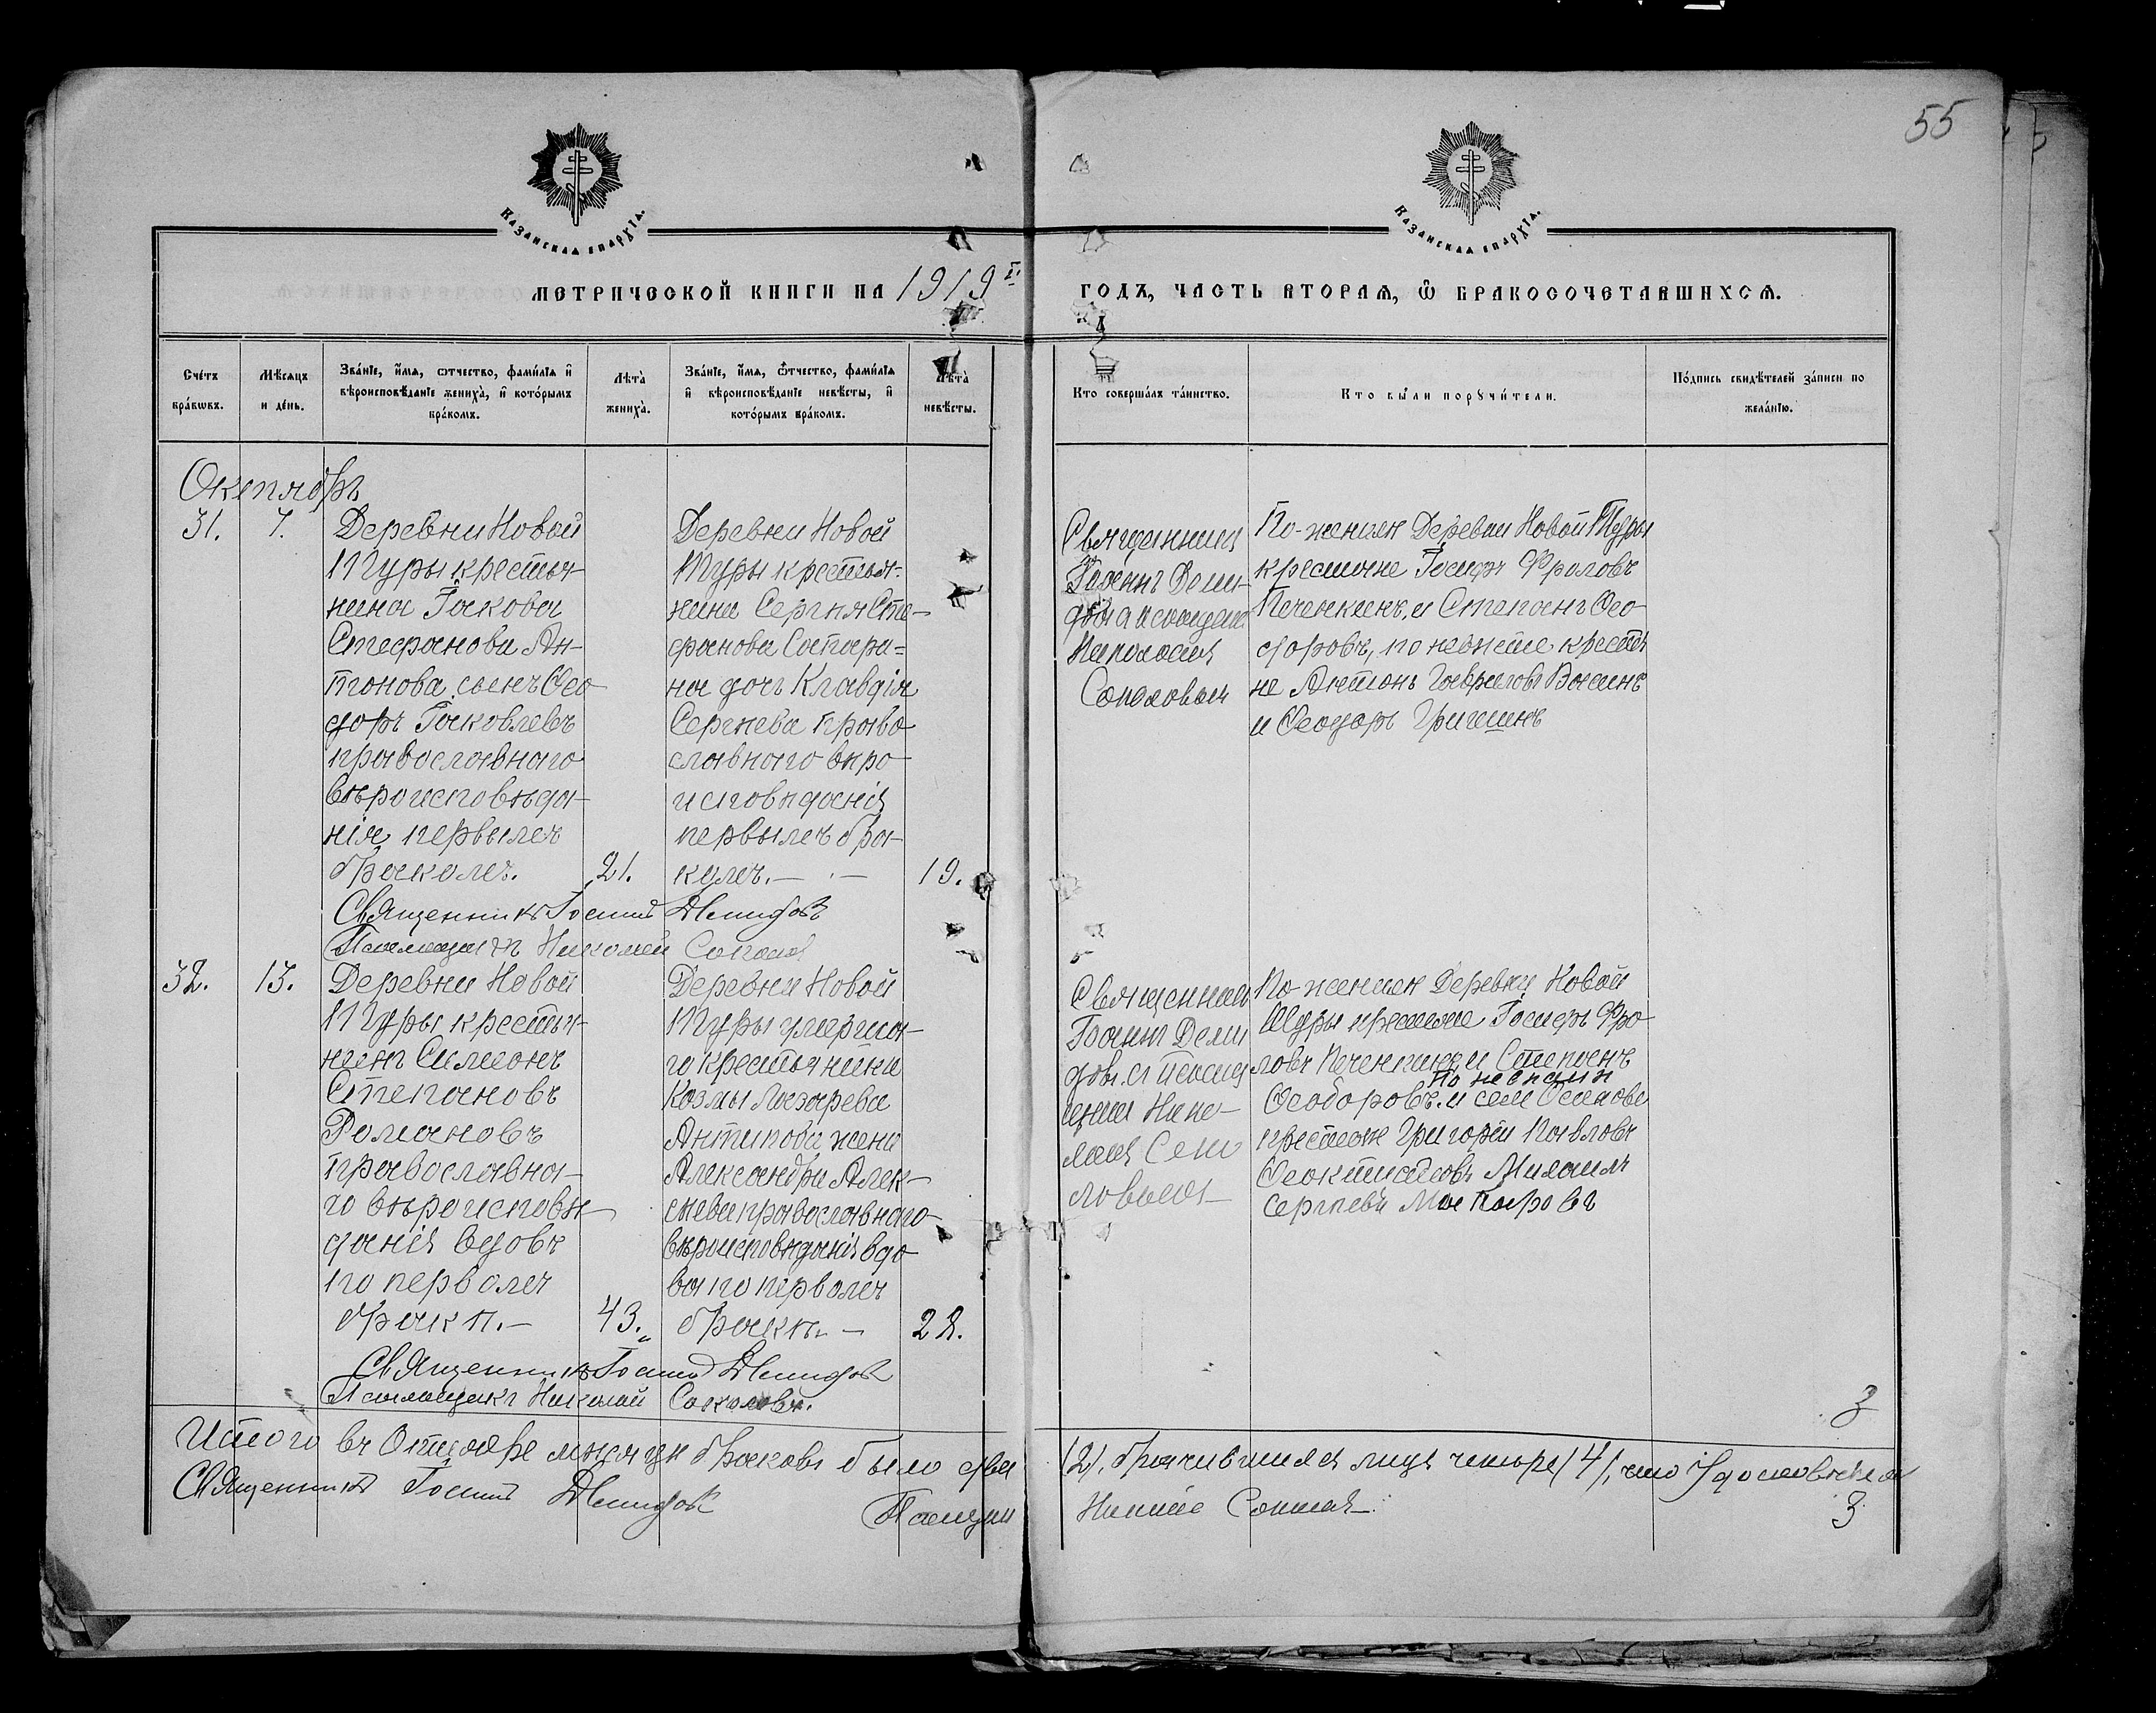 55
Казанская епархїа.
Казанская епархїа.
Метрической книги на 1919 й
годъ, часть вторая, ѡ бракосочетавшихся.
Сче́тъ бра́ковъ.
Мѣ́сяцъ и де́нь.
Зва́нїе, и҆́мя, ѻтчество, фами́лїя и҆ вѣроисповѣ́данїе жениха̀, и҆ кото́рымъ бра́комъ.
Лѣта̀ жениха̀.
Зва́нїе, и҆́мя, ѻтчество, фами́лїя и҆ вѣроисповѣ́данїе невѣ́сты, и҆ кото́рымъ бра́комъ.
Лѣта̀ невѣ́сты.
Кто соверша́лъ та́инство.
Кто бы́ли порꙋчи́тели.
По́дпись свидѣ́телей за́писи по жела́нїю.
Октябрь
31.
7.
Деревни Новой
Туры крестья-
нина Іакова
Стефанова Ан-
тонова сынъ Ѳео
доръ Іаковлевъ
православнаго
вѣроисповѣда-
нія первымъ
бракомъ.
21.
Деревни Новой
Туры крестья-
нина Сергія Сте-
фанова Сапари-
на дочь Клавдія
Сергѣева право
славнаго вѣро
исповѣданія
первымъ бра-
комъ. —
19.
Священникъ
Іоаннъ Деми-
довъ
Николаемъ
Соколовым
По женихѣ Деревни Новой Туры
крестьяне Іосифъ Фроловъ
Печенкинъ, и Степанъ Ѳео
доровъ, по невѣсте крестья
не Антонъ Гавриловъ Васинъ
и Ѳеодоръ Гришинъ
Священникъ Іоаннъ Демидовъ
Псаломщикъ Николай Соколов
32.
13.
Деревни Новой
Туры крестья-
нинъ Симеонъ
Степановъ
Романовъ
православна-
го вѣроисповѣ-
данія вдовъ
по первомъ
бракѣ. —
43.
Деревни Новой
Туры умерша-
го крестьянина
Козмы Лазарева
Антипова жена
Александра Алек-
сѣева православнаго
вѣроисповѣданія вдо
ва по первомъ
бракѣ. —
22.
Священник
Іоаннъ Деми
довъ и псалом
щик Нико-
лай Соко
ловымъ
По женихѣ Деревни Новой
Туры крестьяне Іосифъ Фро-
ловъ Печенкинъ и Степанъ
по невѣсти
Ѳеодоровъ. и сели Осинова
крестьяне Григорій Павловъ
Ѳеоктистовъ Михаилъ
Сергѣевъ Макаровъ
Священникъ Іоаннъ Демидовъ
Псаломщикъ Николай Соколовъ.
3
Итого въ Октябре мѣсяцѣ браковъ было два
(2), брачившихся лицъ четыре (4), что удостовѣряемъ
Священникъ Іоаннъ Демидовъ
Псаломщик
Николай Соколовъ
3